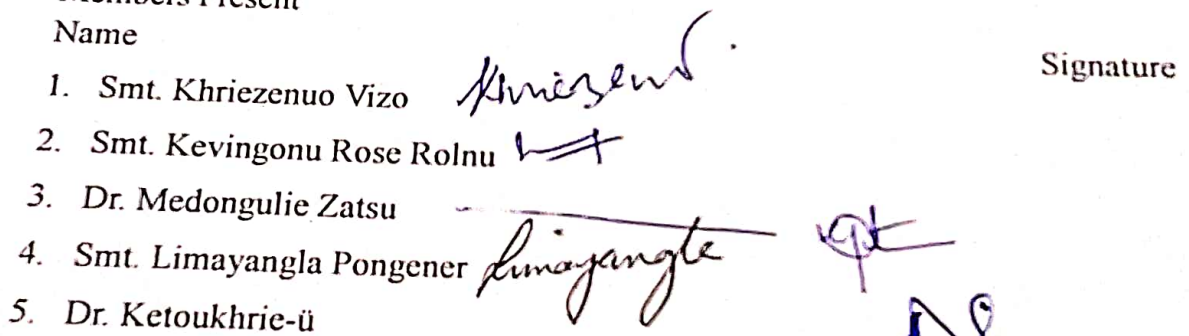 Name
Signature
1. Smt. Khriezenuo Vizo Khriezenu
2. Smt. Kevingonu Rose Rolnu
3. Dr. Medongulie Zatsu
4. Smt. Limayangla Pongener Limayangla
5. Dr. Ketoukhrie-ü